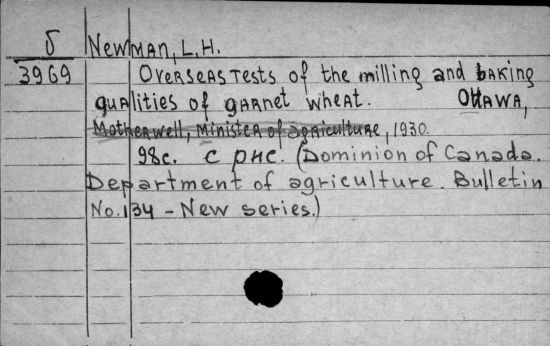 δ Newman, L.H.
3969 Overseas tests of the milling and baking
qualities of garnet wheat. Ottawa,
Motherwell, Minister of agriculture, 1930.
98c. с рис. (Dominion of Canada.
Department of agriculture. Bulletin
No. 134 - New series.)